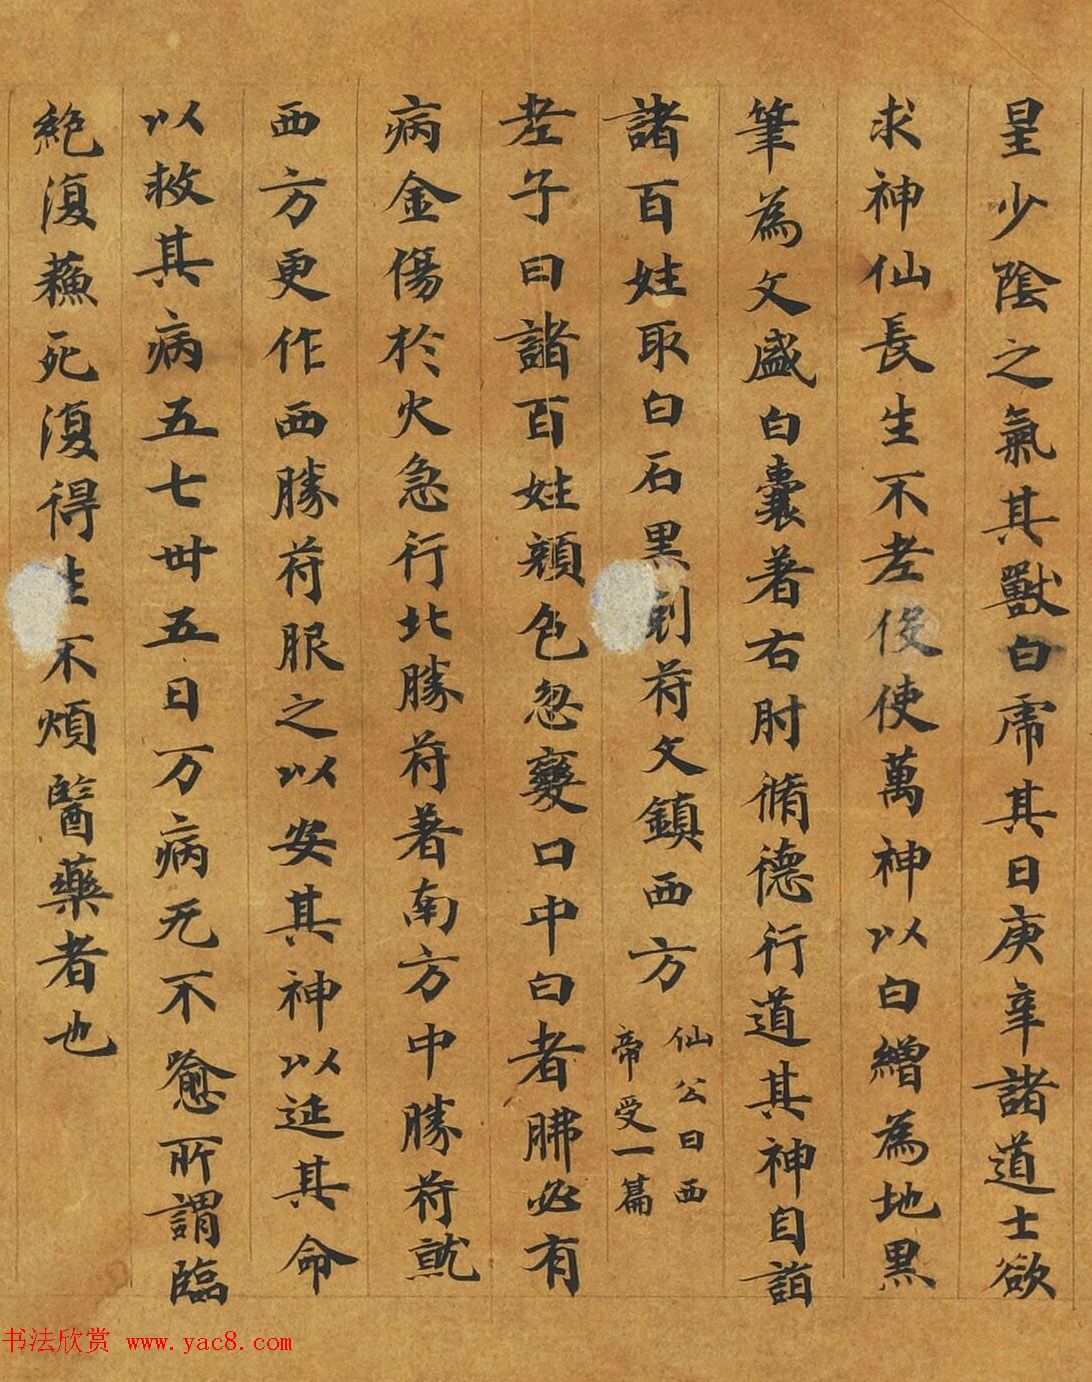 星少陰之氣其獸白虎其日庚辛諸道士欲
求神仙長生不老役使萬神以白繒為地黑
筆為文盛白囊著右肘脩德行道其神自詣
諸百姓取白石黑刻符文鎮西方
仙公曰西
帝受一篇
老子曰諸百姓顏色忽變口中白者肺必有
病金傷於火急行北勝符著南方中勝符就
西方更作西勝符服之以安其神以延其命
以救其病五七卅五日万病无不愈所謂臨
絕復蘇死復得生不煩醫藥者也
书法欣赏 www.yac8.com